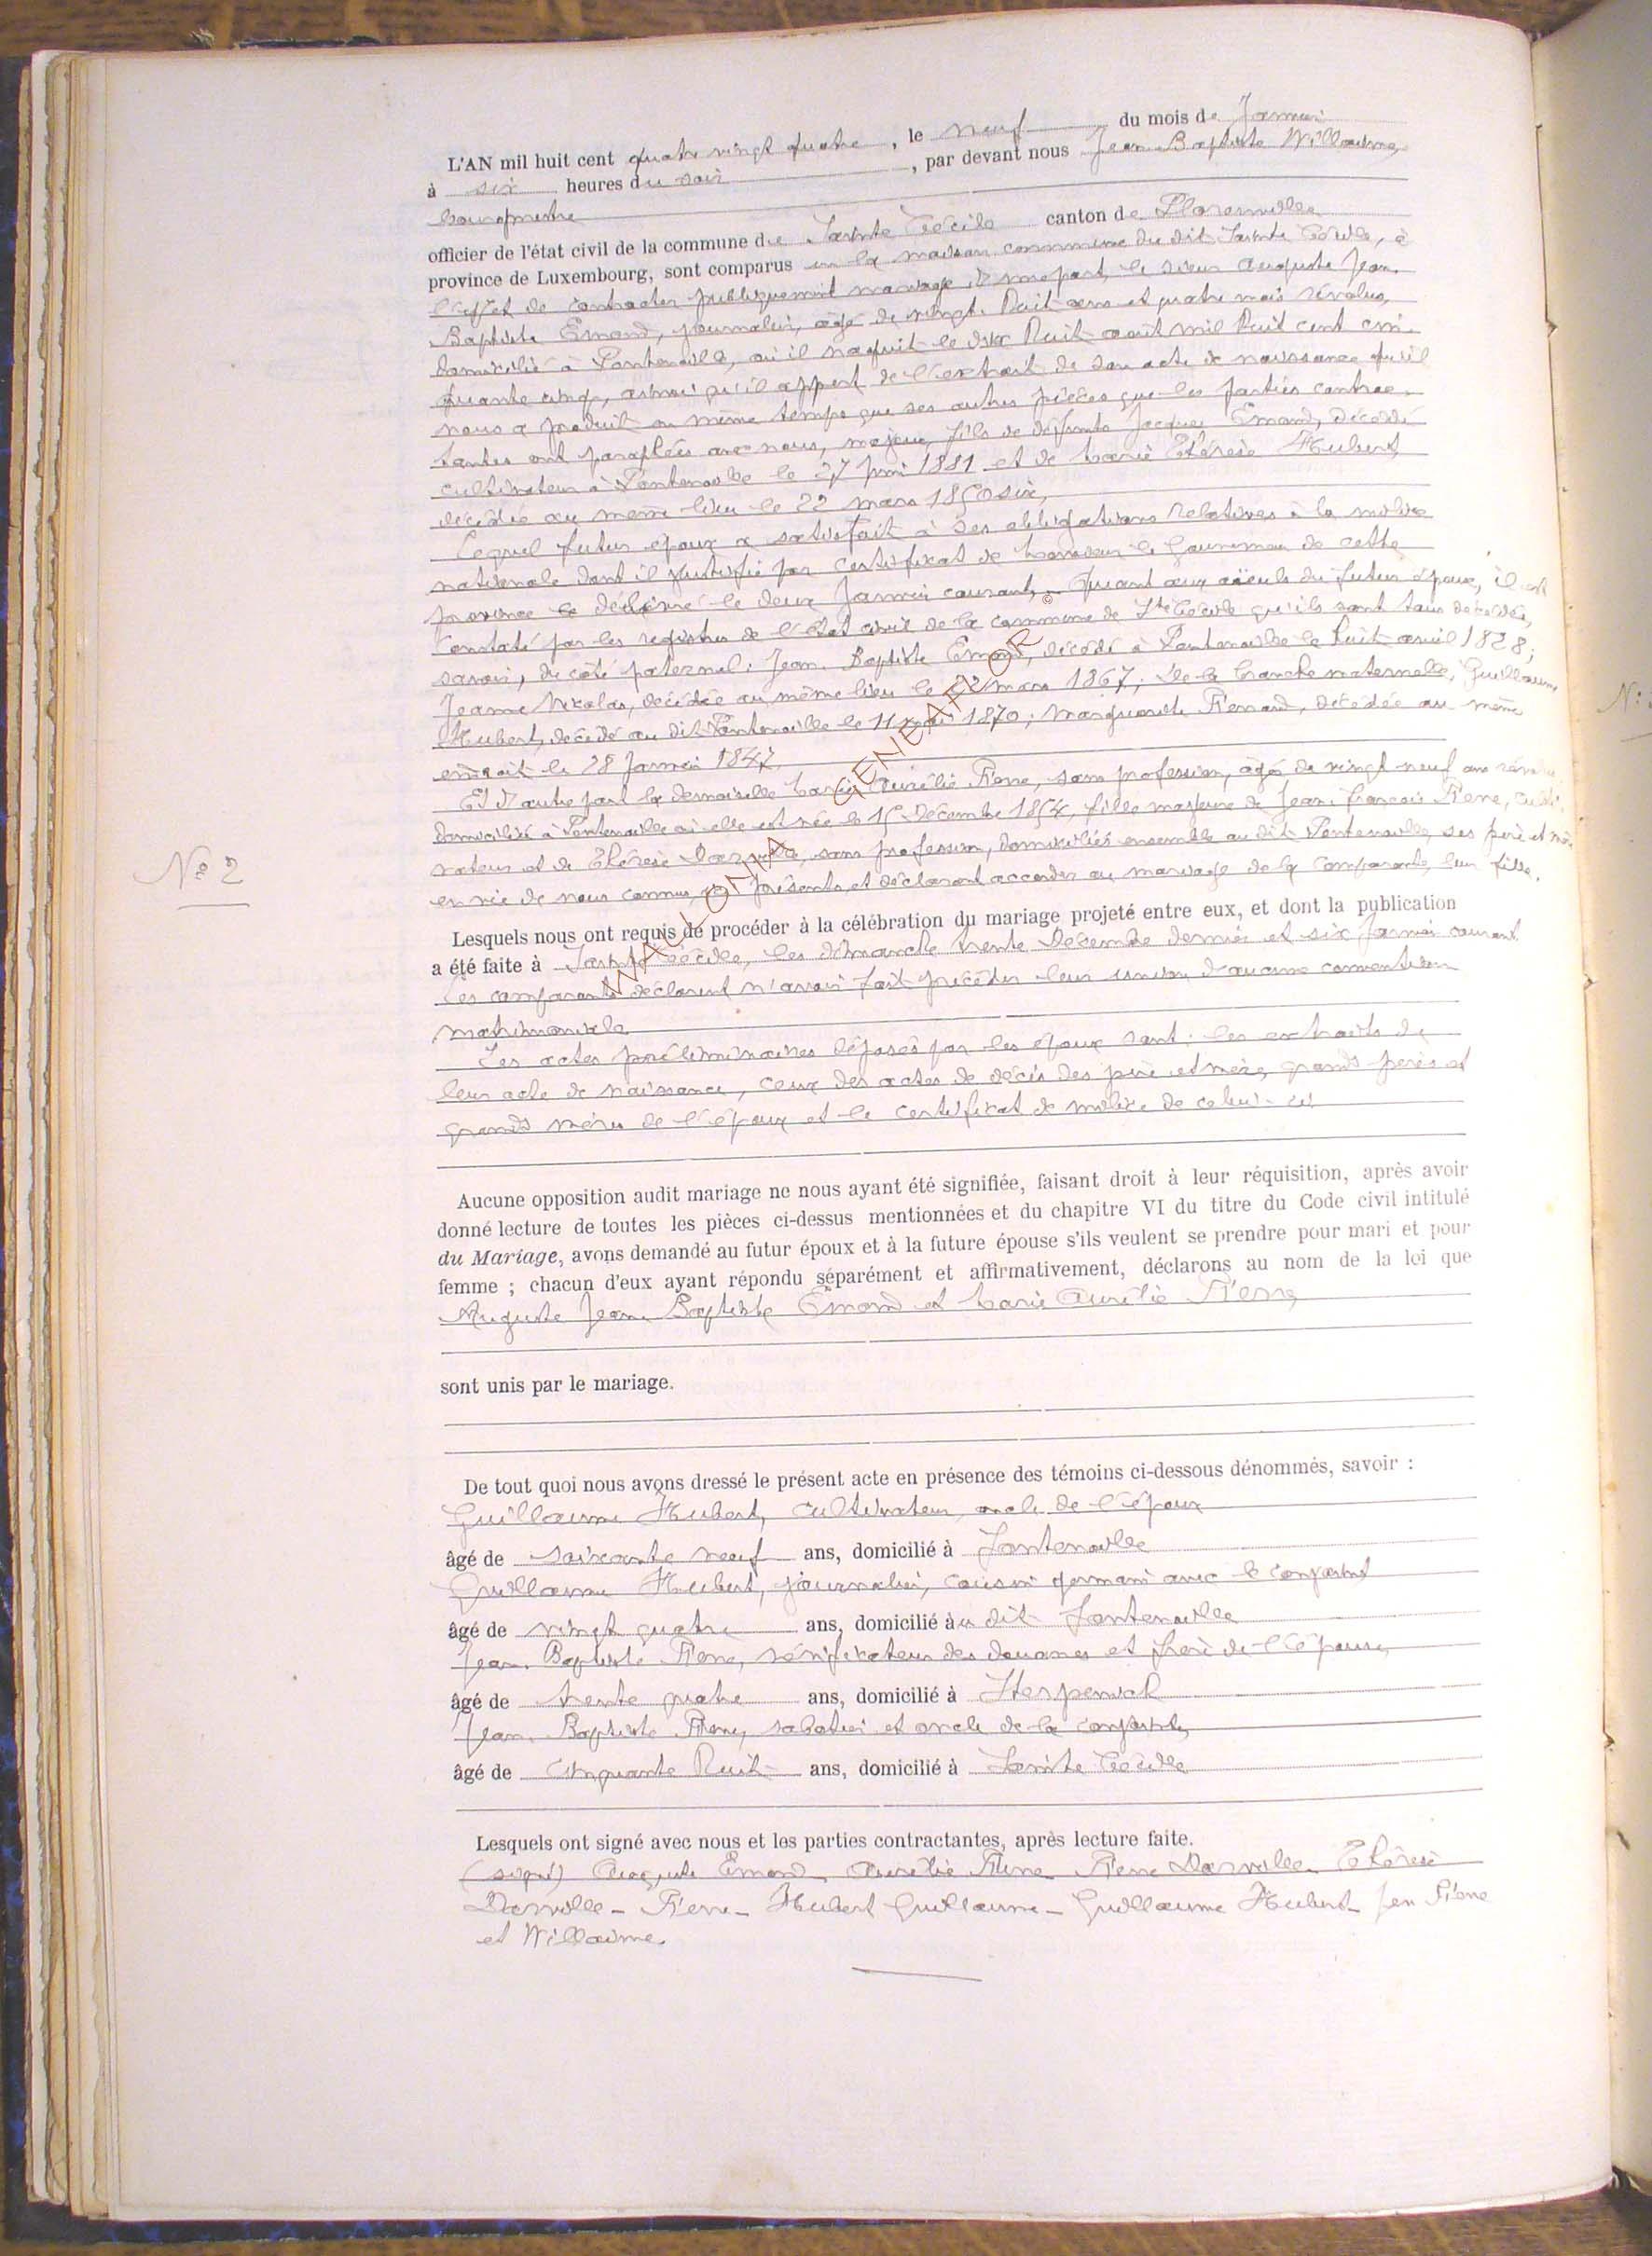 L'AN mil huit cent quatre vingt quatre, le neuf du mois de Janvier
à six heures du soir, par devant nous Jean Baptiste Willaime,
bourgmestre
officier de l'état civil de la commune de Sainte Cécile canton de Florenville
province de Luxembourg, sont comparus en la maison commune du dit Sainte Cécile, à
l'effet de contracter publiquement mariage, d'une part, le sieur Auguste Jean-
Baptiste Emond, journalier, âgé de vingt-huit ans et quatre mois révolus,
domicilié à Fontenoille, où il naquit le dix huit août mil huit cent cin-
quante cinq, ainsi qu'il appert de l'extrait de son acte de naissance qu'il
nous a produit en même temps que ses autres pièces que les parties contrac-
tantes ont paraphées avec nous, majeur, fils de défunts Jacques Emond, décédé
cultivateur à Fontenoille le 27 juin 1881 et de Marie Thérèse Hubert,
décédée au même lieu le 22 mars 1850 six,
Lequel futur époux a satisfait à ses obligations relatives à la milice
nationale dont il justifie par certificat de Monsieur le Gouverneur de cette
province le deux Janvier courant, Quant aux aïeuls du futur époux, il est
constaté par les registres de l'état civil de la commune de Ste Cécile qu'ils sont tous décédés,
savoir, du côté paternel, Jean-Baptiste Emond, décédé à Fontenoille le huit avril 1828;
Jeanne Nicolas, décédée au même lieu le 12 mars 1867; de la branche maternelle, Guillaume
Hubert, décédé au dit Fontenoille le 11 mai 1870; Marguerite Renard, décédée au même
endroit le 28 Janvier 1847.
Et d'autre part la demoiselle Marie Aurélie Pierre, sans profession, âgée de vingt neuf ans révolus,
domiciliée à Fontenoille où elle est née le 15 Décembre 1854, fille majeure de Jean-François Pierre, culti-
vateur et de Thérèse Darville, sans profession, domiciliés ensemble au dit Fontenoille, ses père et mère
en vie de nous connus, ici présents, et déclarant accorder au mariage de la comparante, leur fille.
Lesquels nous ont requis de procéder à la célébration du mariage projeté entre eux, et dont la publication
a été faite à Sainte Cécile, les dimanche trente Décembre dernier et six Janvier courant.
Les comparants déclarent n'avoir fait précéder leur union d'aucune convention
matrimoniale
Les actes préliminaires déposés par les époux sont: les extraits de
leur acte de naissance, ceux des actes de décès des père et mère, grands pères et
grands mères de l'époux et le certificat de milice de celui-ci
Aucune opposition audit mariage ne nous ayant été signifiée, faisant droit à leur réquisition, après avoir
donné lecture de toutes les pièces ci-dessus mentionnées et du chapitre VI du titre du Code civil intitulé
du Mariage, avons demandé au futur époux et à la future épouse s'ils veulent se prendre pour mari et pour
femme ; chacun d'eux ayant répondu séparément et affirmativement, déclarons au nom de la loi que
Auguste Jean Baptiste Emond et Marie Aurélie Pierre
sont unis par le mariage.
De tout quoi nous avons dressé le présent acte en présence des témoins ci-dessous dénommés, savoir :
Guillaume Hubert, cultivateur, oncle de l'époux
âgé de soixante neuf ans, domicilié à Fontenoille
Guillaume Hubert, journalier, cousin germain avec le comparant
âgé de vingt quatre ans, domicilié au dit Fontenoille
Jean-Baptiste Pierre, vérificateur des douanes et frère de l'épouse,
âgé de trente quatre ans, domicilié à Hesperich
Jean-Baptiste Pierre, sabotier et oncle de la comparante,
âgé de cinquante huit ans, domicilié à Sainte Cécile
Lesquels ont signé avec nous et les parties contractantes, après lecture faite.
(signé) Auguste Emond Aurélie Pierre Pierre Darville Thérèse
Darville - Pierre - Hubert Guillaume - Guillaume Hubert - Jean Pierre
et Willaime.
N° 2
WALLONIA GENEAFLOR ©